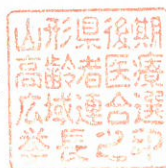 山形県後期
高齢者医療
広域連合選
挙長之印